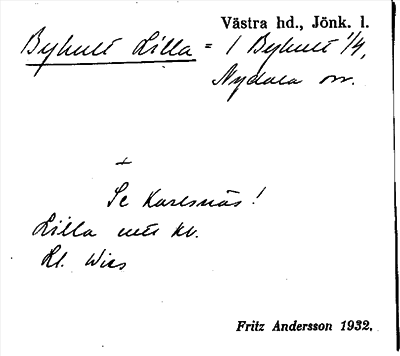 Västra hd., Jönk. l.
Byhult Lilla = 1 Byhult 1/4,
Nydala
+
Se Karlsnäs!
Lilla
Hl.
Fritz Andersson 1932.